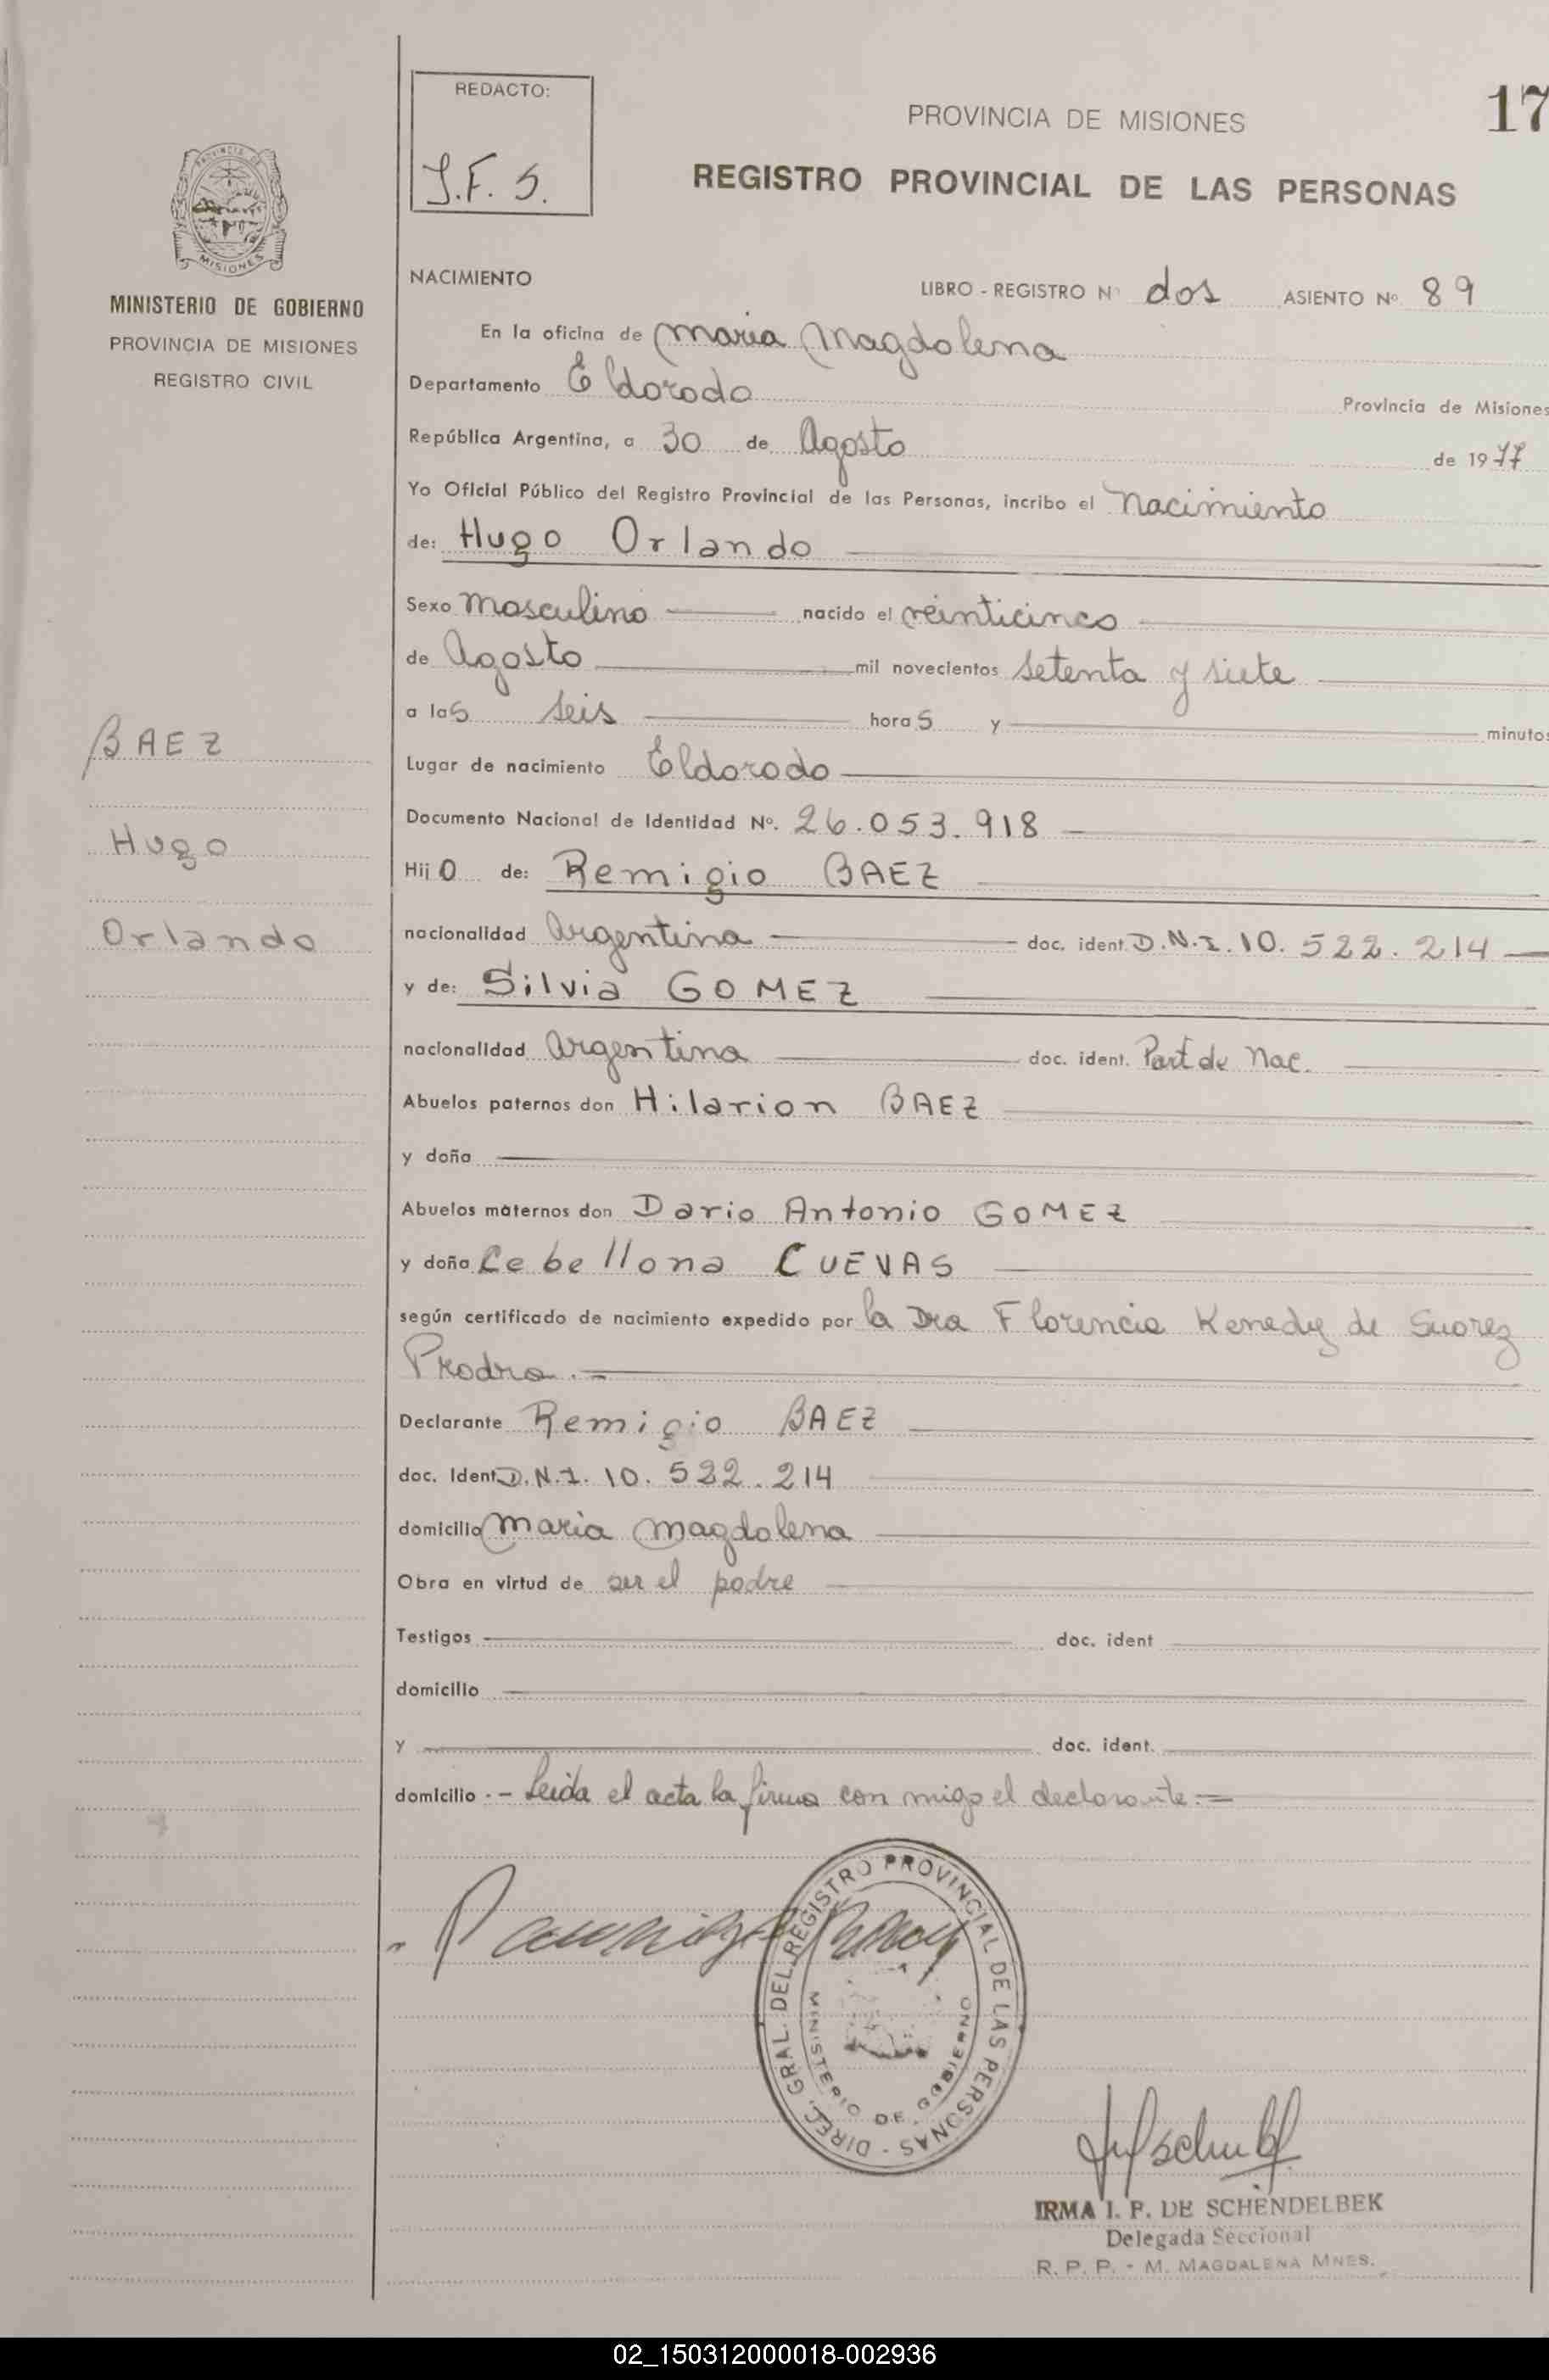 REDACTO:
J.F.S.
PROVINCIA DE MISIONES
17
REGISTRO PROVINCIAL DE LAS PERSONAS
PROVINCIA DE
MISIONES
MINISTERIO DE GOBIERNO
PROVINCIA DE MISIONES
REGISTRO CIVIL
BAEZ
Hugo
Orlando
NACIMIENTO
LIBRO - REGISTRO Nº dos ASIENTO Nº 89
En la oficina de Maria Magdalena
Departamento Eldorado Provincia de Misiones
República Argentina, a 30 de Agosto de 1977
Yo Oficial Público del Registro Provincial de las Personas, incribo el Nacimiento
de: Hugo Orlando
Sexo Masculino nacido el veinticinco
de Agosto mil novecientos setenta y siete
a las seis horas y minutos
Lugar de nacimiento Eldorado
Documento Nacional de Identidad Nº. 26.053.918
Hijo de: Remigio BAEZ
nacionalidad Argentina doc. ident. D.N.I. 10.522.214
y de: Silvia GOMEZ
nacionalidad Argentina doc. ident. Part de Nac.
Abuelos paternos don Hilarion BAEZ
y doña
Abuelos maternos don Dario Antonio GOMEZ
y doña Cebellona CUEVAS
según certificado de nacimiento expedido por la Dra Florencia Kenedy de Suarez
Prodro.=
Declarante Remigio BAEZ
doc. Ident. D.N.I. 10.522.214
domicilio Maria Magdalena
Obra en virtud de ser el padre
Testigos doc. ident
domicilio
y doc. ident.
domicilio.- Leida el acta la firma con migo el declarante.=
DIREC. GRAL. DEL REGISTRO PROVINCIAL DE LAS PERSONAS -
MINISTERIO DE GOBIERNO
IRMA I. P. DE SCHENDELBEK
Delegada Seccional
R. P. P. - M. MAGDALENA MNES.
02_150312000018-002936